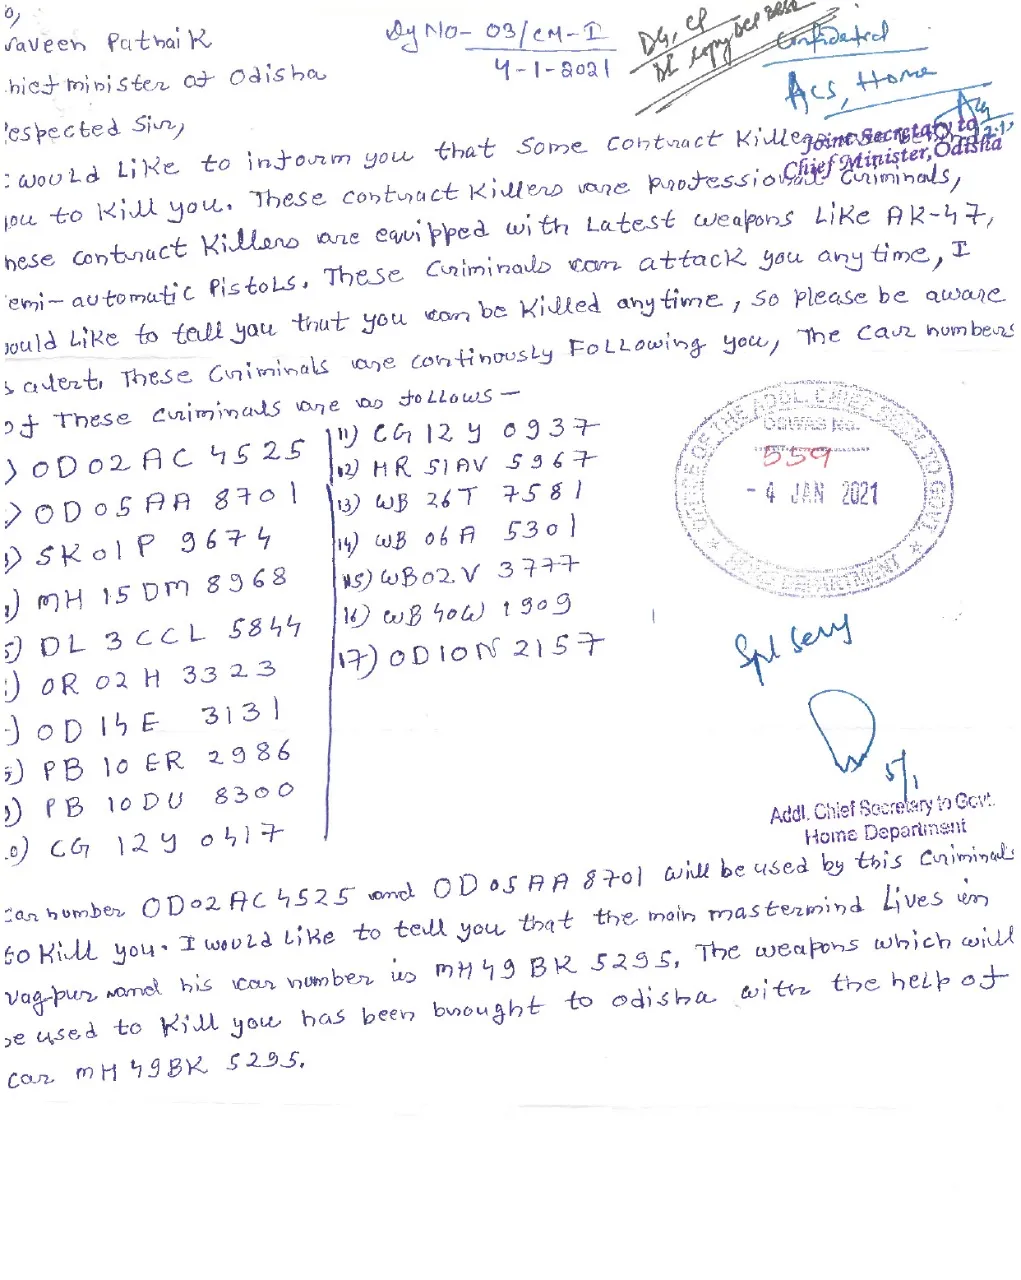 o,
raveen Patnaik
hief minister of Odisha
Dy No- 03/CM-I
4-1-2021
DG, CP
Confidential
ACS, Home
Joint Secretary to
Chief Minister, Odisha
espected Sir,
I would Like to inform you that Some contract Killers
you to Kill you. These contract Killers are professional Criminals,
hese contract Killers are equipped with Latest weapons Like AK-47,
emi-automatic Pistols. These Criminals can attack you any time, I
would Like to tell you that you can be Killed anytime, so please be aware
s alert. These Criminals are continously Following you, The Car numbers
of These criminals are as follows -
) OD 02 AC 4525
) OD 05 AA 8701
) SK 01 P 9674
) MH 15 DM 8968
5) DL 3 CCL 5844
) OR 02 H 3323
) OD 14 E 3131
) PB 10 ER 2986
) PB 10 DU 8300
0) CG 12 Y 0417
11) CG 12 Y 0937
12) HR 51 AV 5967
13) WB 26T 7581
14) WB 06 A 5301
15) WB 02 V 3777
16) WB 40W 1909
17) OD 10 N 2157
OFFICE OF THE ADDL. CHIEF SECY. TO GOVT.
OSWAS No.
559
- 4 JAN 2021
HOME DEPARTMENT
Spl Secy
5/1
Addl. Chief Secretary to Govt.
Home Department
Car number OD 02 AC 4525 and OD 05 AA 8701 will be used by this Criminals
to Kill you. I would Like to tell you that the main mastermind Lives in
Nagpur and his car number is MH 49 BK 5295. The weapons which will
be used to Kill you has been brought to odisha with the help of
car MH 49 BK 5295.